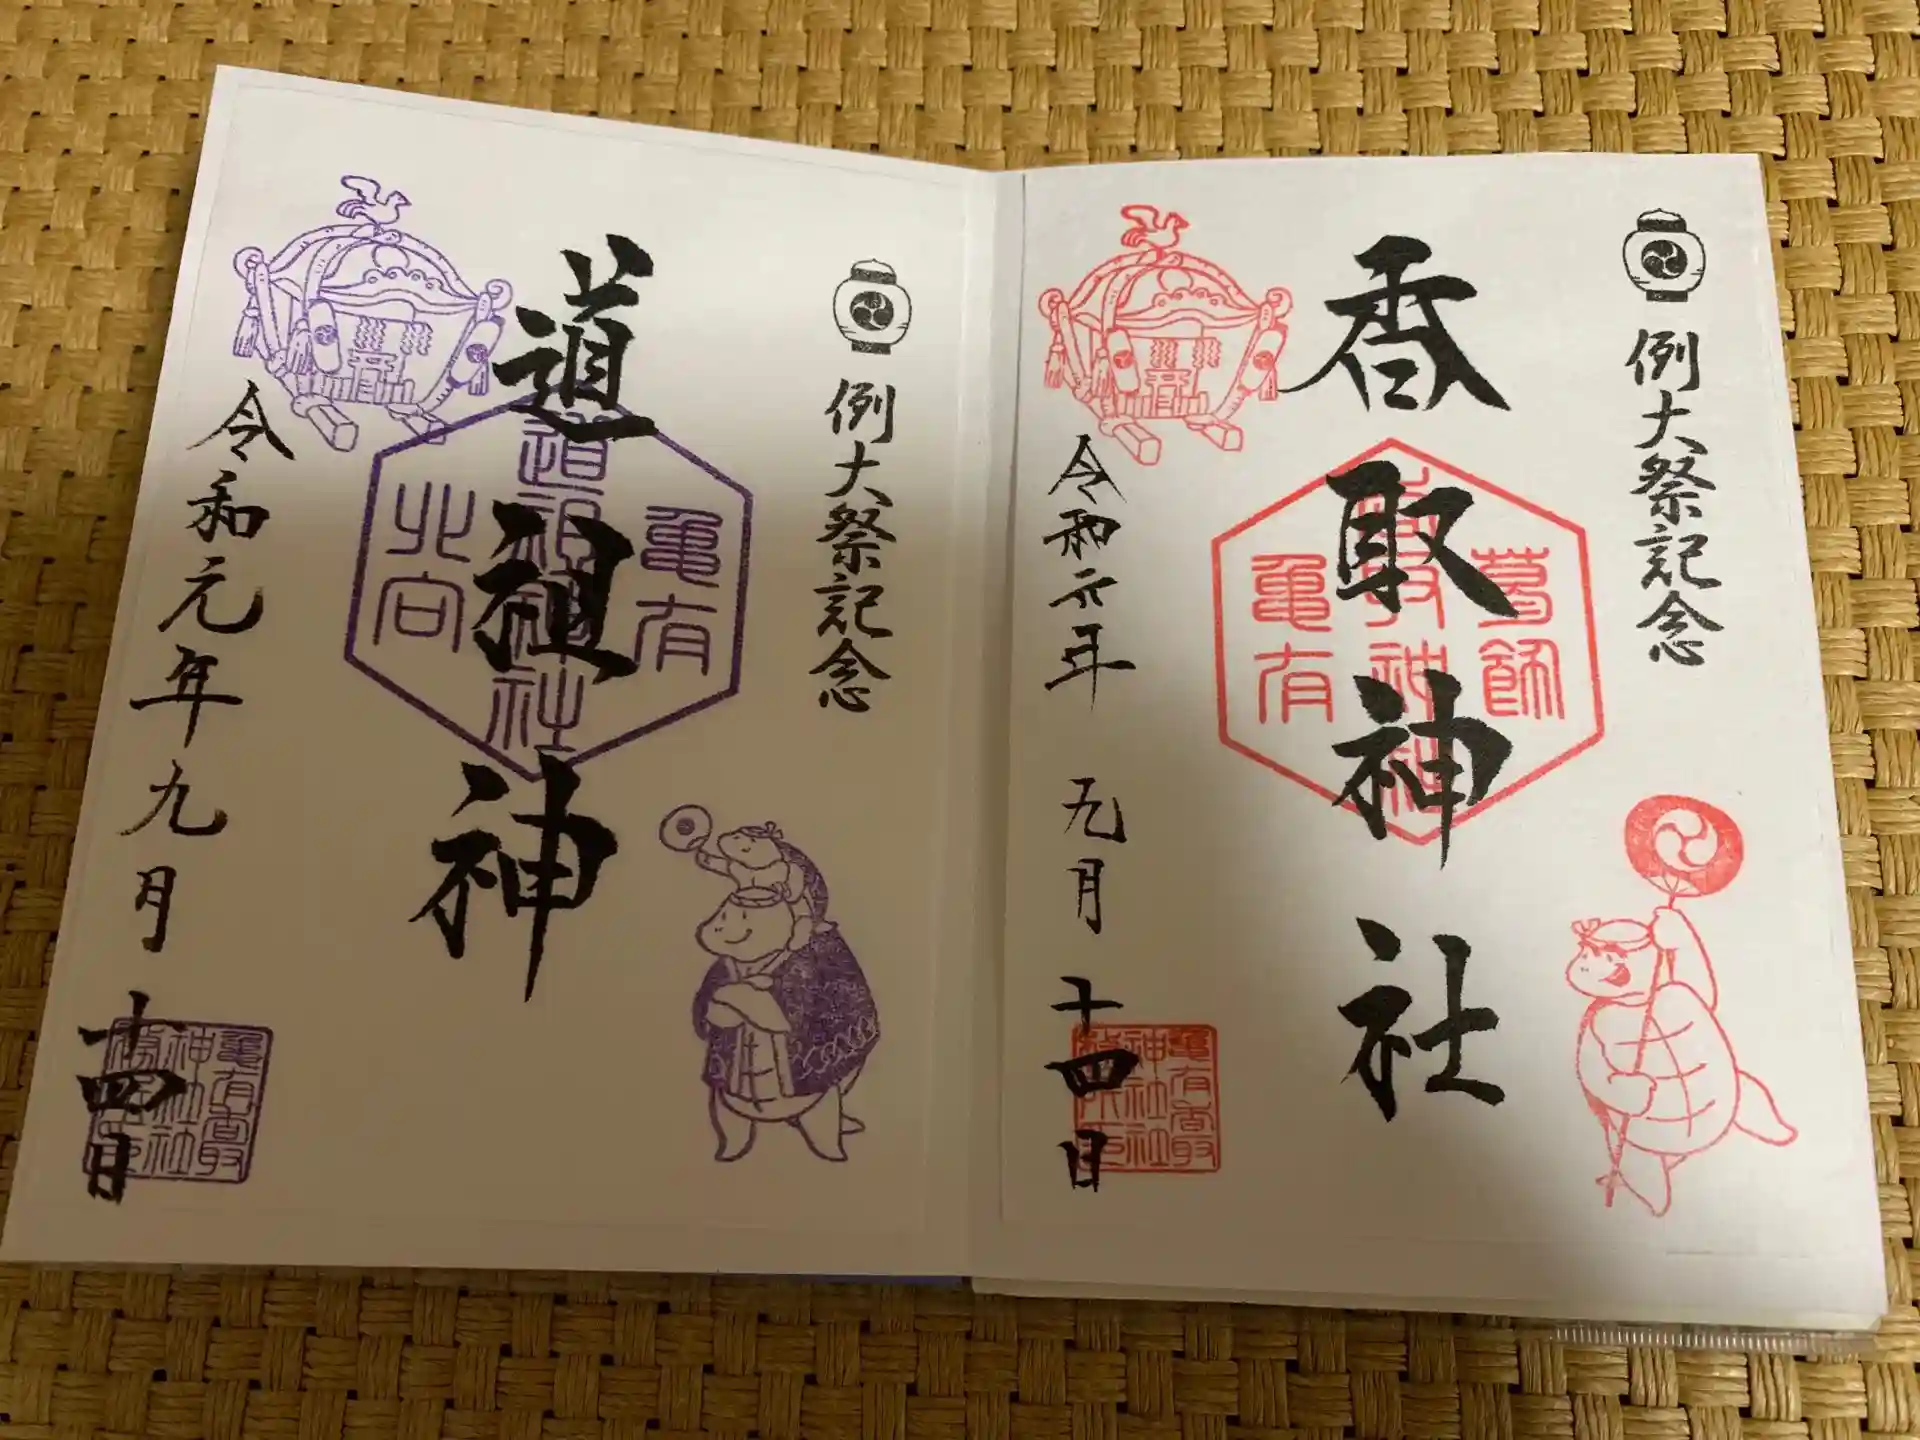 例大祭記念
香取神社
葛飾
香取神社
亀有
令和元年 九月 十四日
亀有香取
神社社
例大祭記念
道祖神
亀有
道祖神社
北向
令和元年九月十四日
亀有香取
神社社